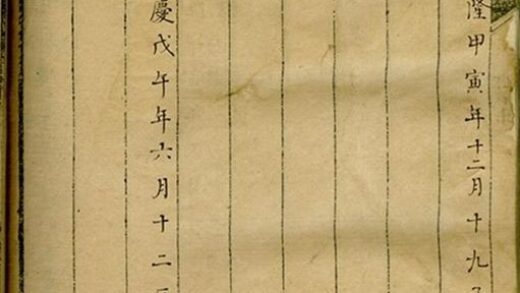 隆甲寅年十二月十九
慶戊午年六月十二